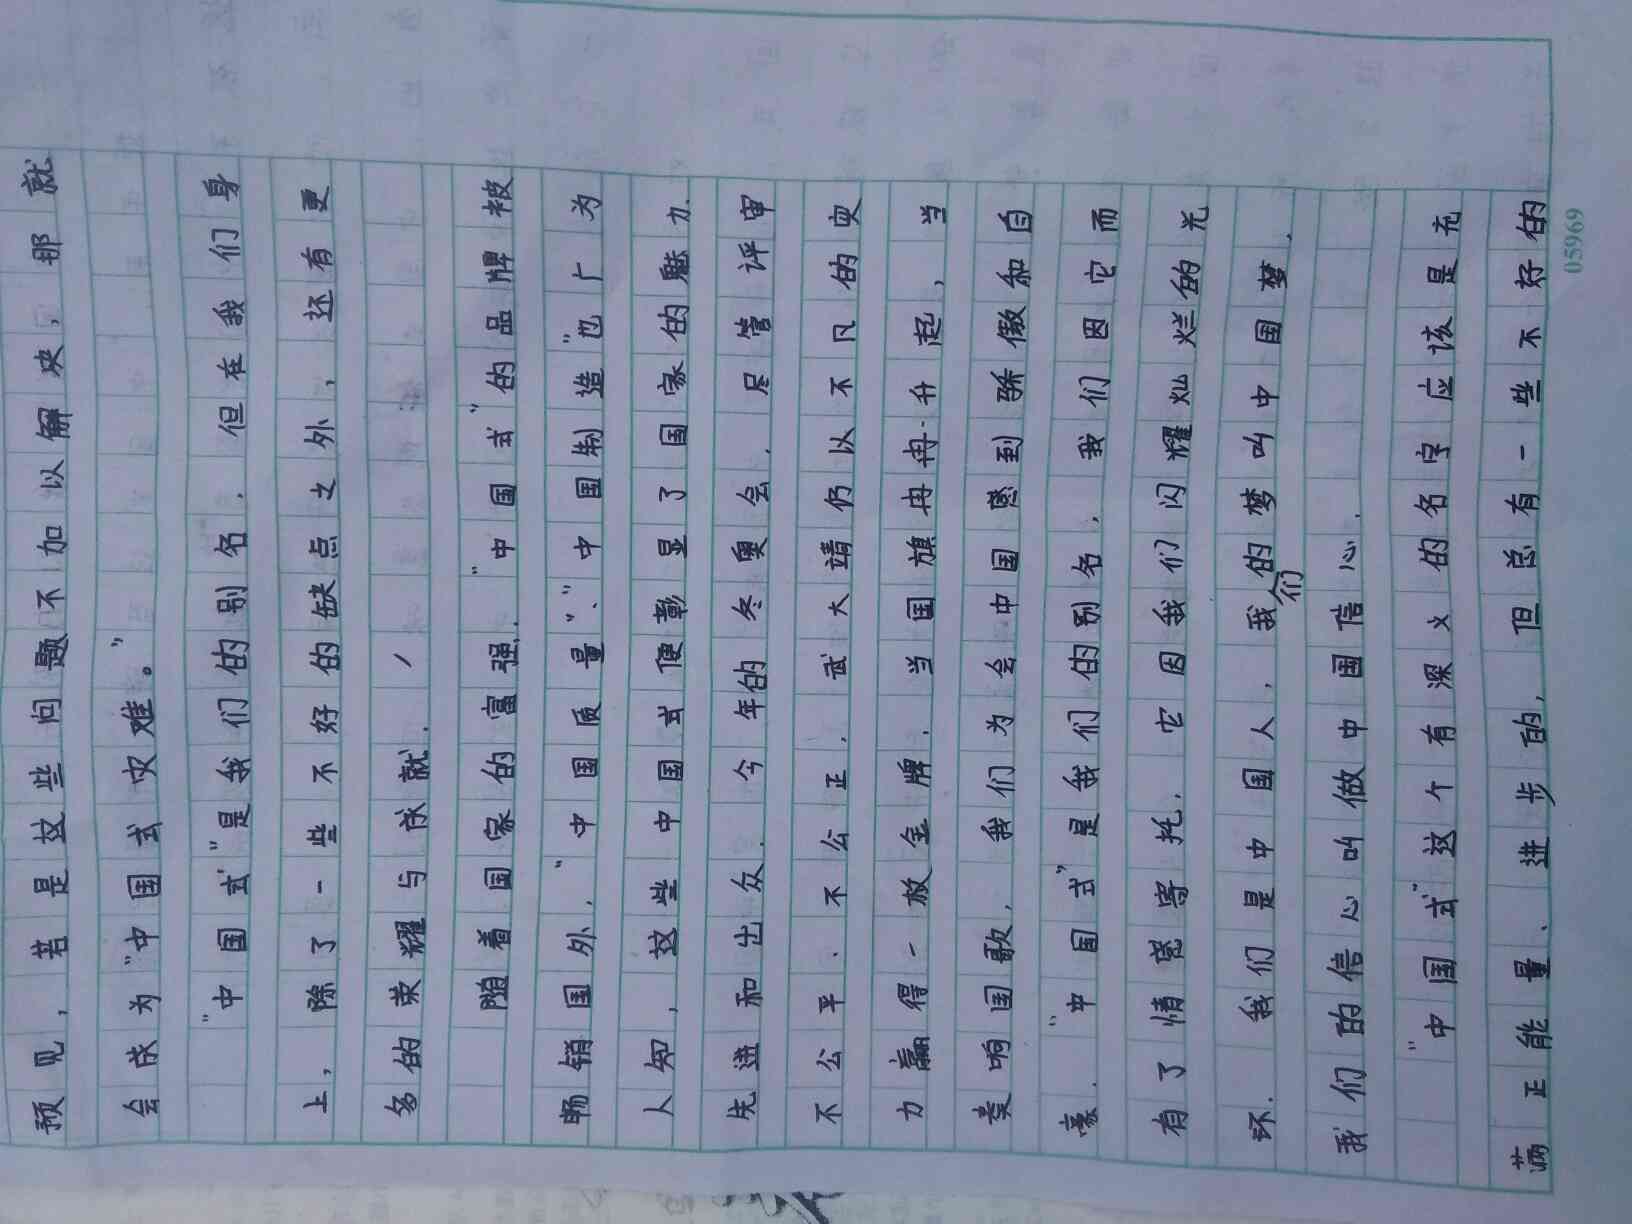 预见，若是这些问题不加以解决，那就
会成为“中国式灾难。”
“中国式”是我们的别名．但在我们身
上，除了一些不好的缺点之外，还有更
多的荣耀与成就．
随着国家的富强．“中国式”的品牌被
畅销国外．“中国质量”、“中国制造”也广为
人知，这些中国式便彰显了国家的魅力．
先进和出众．今年的冬奥会．尽管评审
不公平、不公正．武大靖仍以不凡的实
力赢得一放金牌．当国旗冉冉升起，当
奏响国歌．我们为会中国感到骄傲和自
豪．“中国式”是我们的别名，我们因它而
有了情意寄托．它因我们闪耀灿烂的光
环．我们是中国人，我们的梦叫中国梦．
我们的信心叫做中国信心．
“中国式”这个有深义的名字应该是充
满正能量、进步的，但总有一些不好的
05969